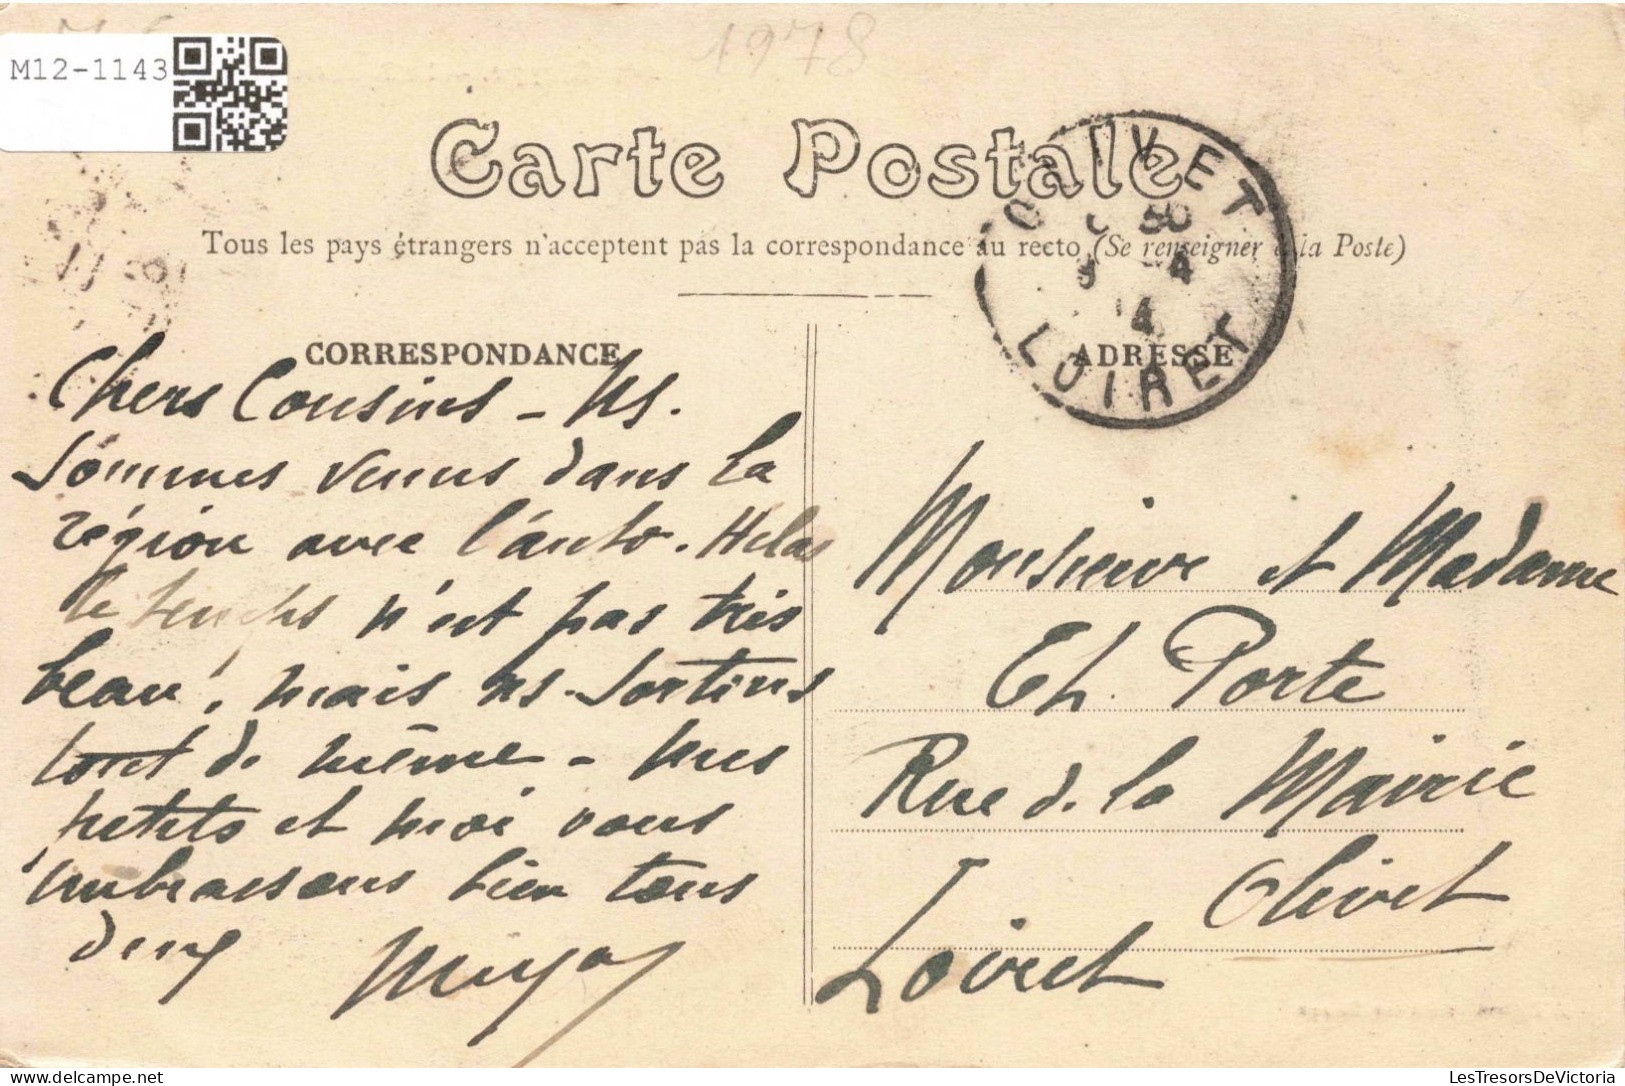 M12-1143
1978
Carte Postale
Tous les pays étrangers n'acceptent pas la correspondance au recto (Se renseigner à la Poste)
OLIVET
LOIRET
CORRESPONDANCE
Chers Cousins - Ns.
sommes venus dans la
région avec l'auto. Hélas
le temps n'est pas très
beau, mais ns. sortons
tout de même - Mes
petits et moi vous
embrassons bien tous
deux
ADRESSE
Monsieur et Madame
Th. Porte
Rue de la Mairie
Olivet
Loiret
LesTresorsDeVictoria